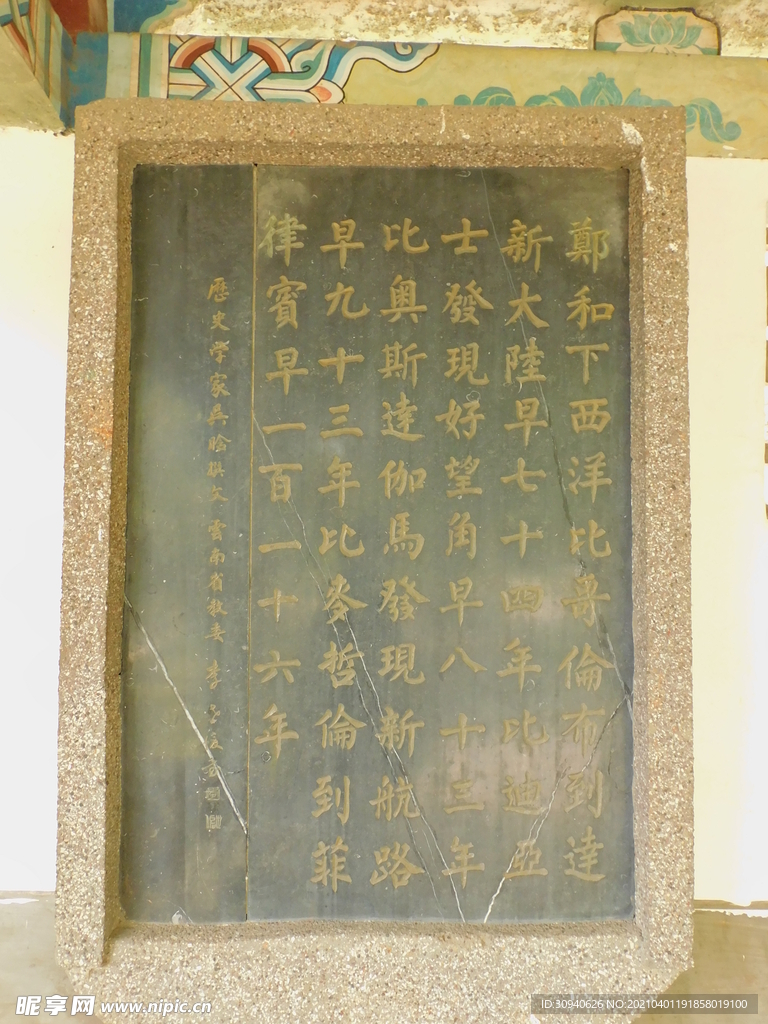 鄭和下西洋比哥倫布到達
新大陸早七十四年比迪亞
士發現好望角早八十三年
比奥斯達伽馬發現新航路
早九十三年比麥哲倫到菲
律賓早一百一十六年
歷史学家吳晗撰文 雲南省教委 李
昵享网 www.nipic.cn
ID:30940626 NO:20210401191858019100